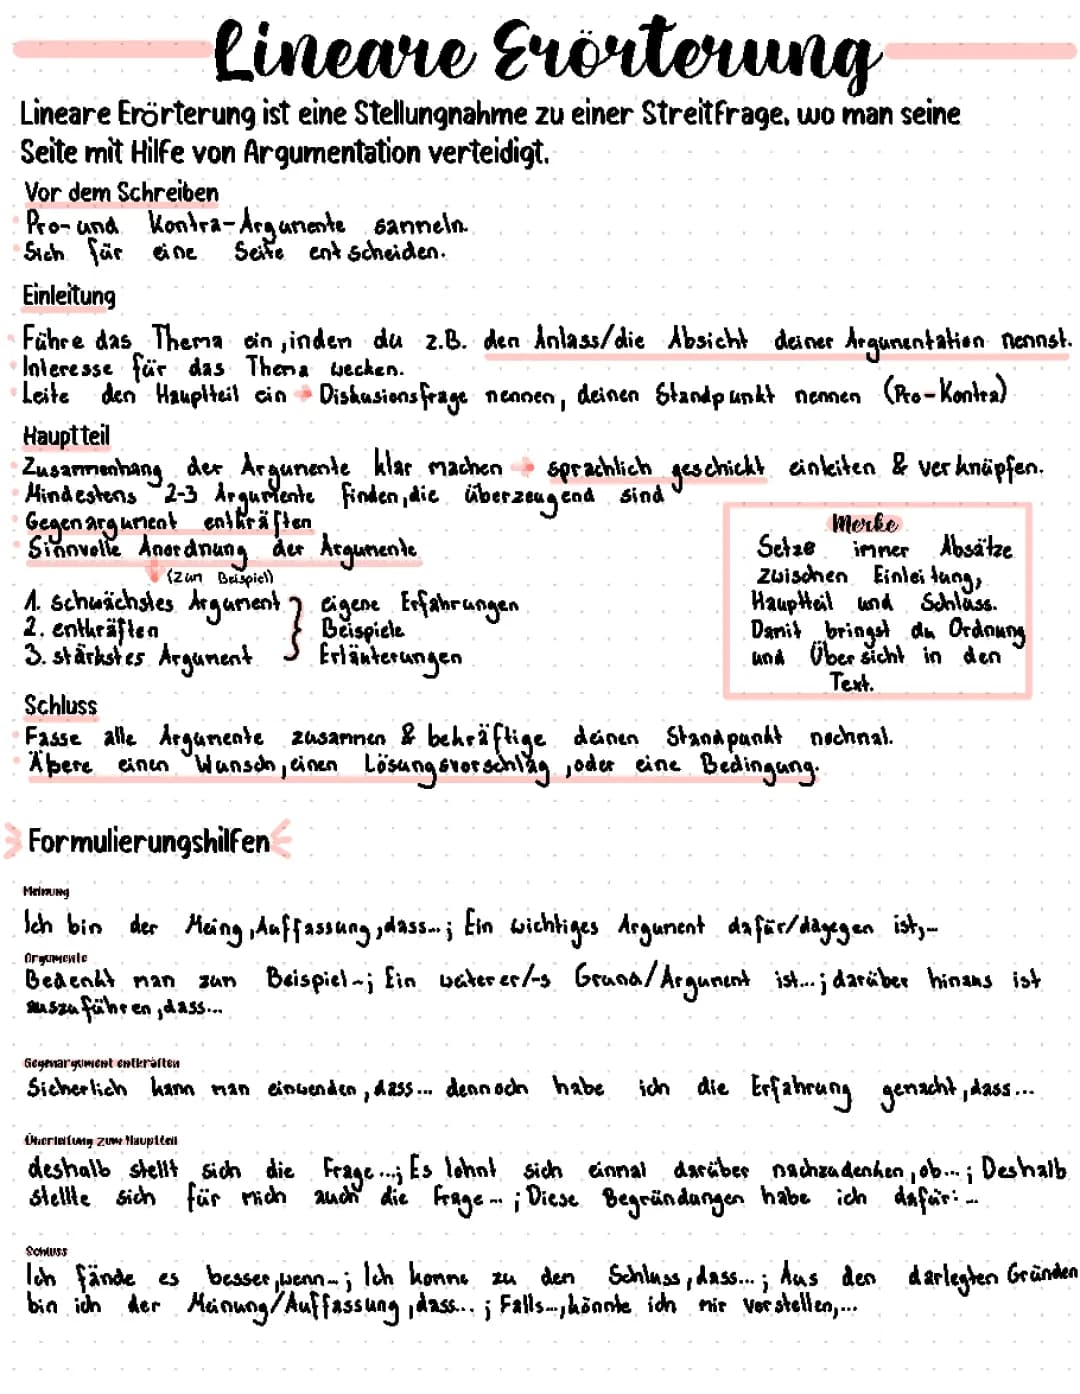 Lineare Erörterung
Lineare Erörterung ist eine Stellungnahme zu einer Streitfrage, wo man seine
Seite mit Hilfe von Argumentation verteidigt.
Vor dem Schreiben
Pro- und Kontra-Argumente sammeln.
Sich für eine Seite entscheiden.
Einleitung
Führe das Thema ein, indem du z.B. den Anlass/die Absicht deiner Argumentation nennst.
Interesse für das Thema wecken.
Leite den Hauptteil ein → Diskusionsfrage nennen, deinen Standpunkt nennen (Pro-Kontra)
Hauptteil
Zusammenhang der Argumente klar machen → sprachlich geschickt einleiten & verknüpfen.
Mindestens 2-3 Argumente finden, die überzeugend sind
Gegenargument entkräften
Sinnvolle Anordnung der Argumente
↓ (Zum Beispiel)
1. schwächstes Argument } eigene Erfahrungen
2. entkräften Beispiele
3. stärkstes Argument Erläuterungen
Merke
Setze immer Absätze
zwischen Einleitung,
Hauptteil und Schluss.
Damit bringst du Ordnung
und Übersicht in den
Text.
Schluss
Fasse alle Argumente zusammen & bekräftige deinen Standpunkt nochmal.
Äußere einen Wunsch, einen Lösungsvorschlag, oder eine Bedingung.
Formulierungshilfen
Meinung
Ich bin der Meing, Auffassung, dass...; Ein wichtiges Argument dafür/dagegen ist,...
Argumente
Bedenkt man zum Beispiel...; Ein weiterer/-s Grund/Argument ist...; darüber hinaus ist
auszuführen, dass...
Gegenargument entkräften
Sicherlich kann man einwenden, dass... dennoch habe ich die Erfahrung gemacht, dass...
Überleitung zum Hauptteil
deshalb stellt sich die Frage...; Es lohnt sich einmal darüber nachzudenken, ob...; Deshalb
stellte sich für mich auch die Frage...; Diese Begründungen habe ich dafür: ...
Schluss
Ich fände es besser, wenn...; Ich komme zu den Schluss, dass...; Aus den darlegten Gründen
bin ich der Meinung/Auffassung, dass...; Falls..., könnte ich mir vorstellen,...